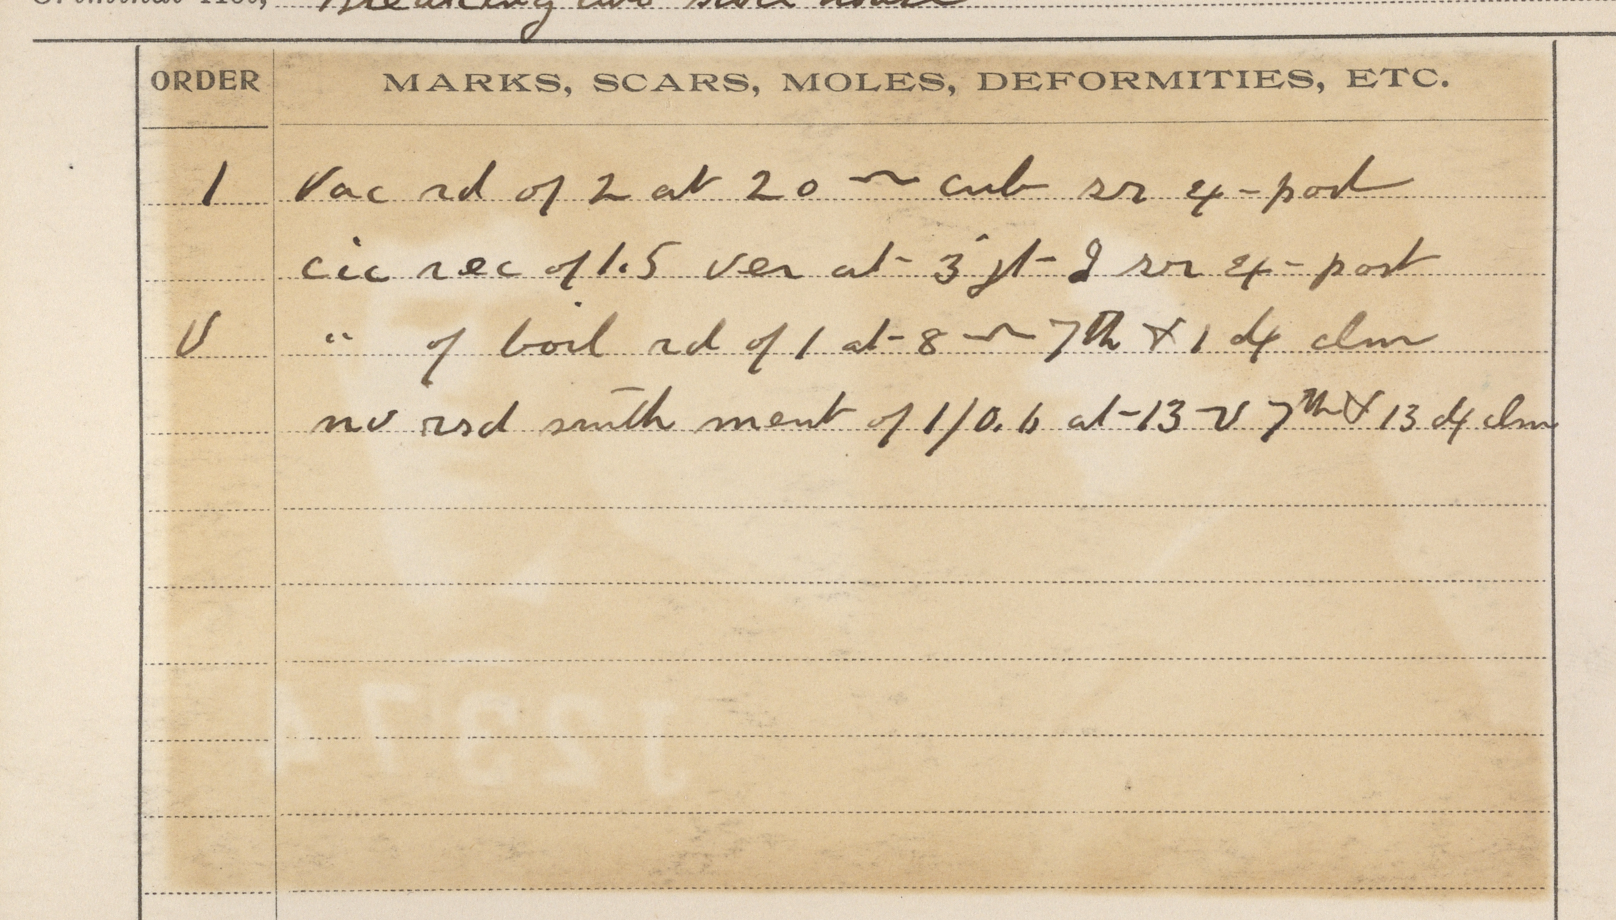 Criminal Act, Breaking into store house
ORDER MARKS, SCARS, MOLES, DEFORMITIES, ETC.
1 Vac rd of 2 at 20 ⁓ cub sr 4 - post
cic rec of 1.5 ver at - 3 jt - J sr 4 - post
V " of boil rd of 1 at - 8 ⁓ 7th & 1 df clm
nv rsd smth ment of 1/0.6 at - 13 ⁓ 7th & 13 df clm
12374